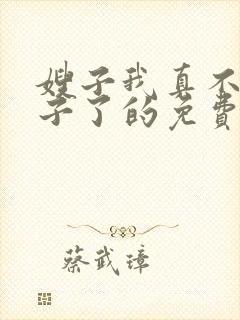 嫂子我真不
子了的免費
蔡武璋